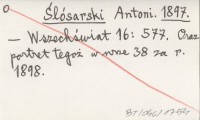 Ślósarski Antoni. 1897.
— Wszechświat 16: 577. Oraz
portret tegoż w nrze 38 za r.
1898.